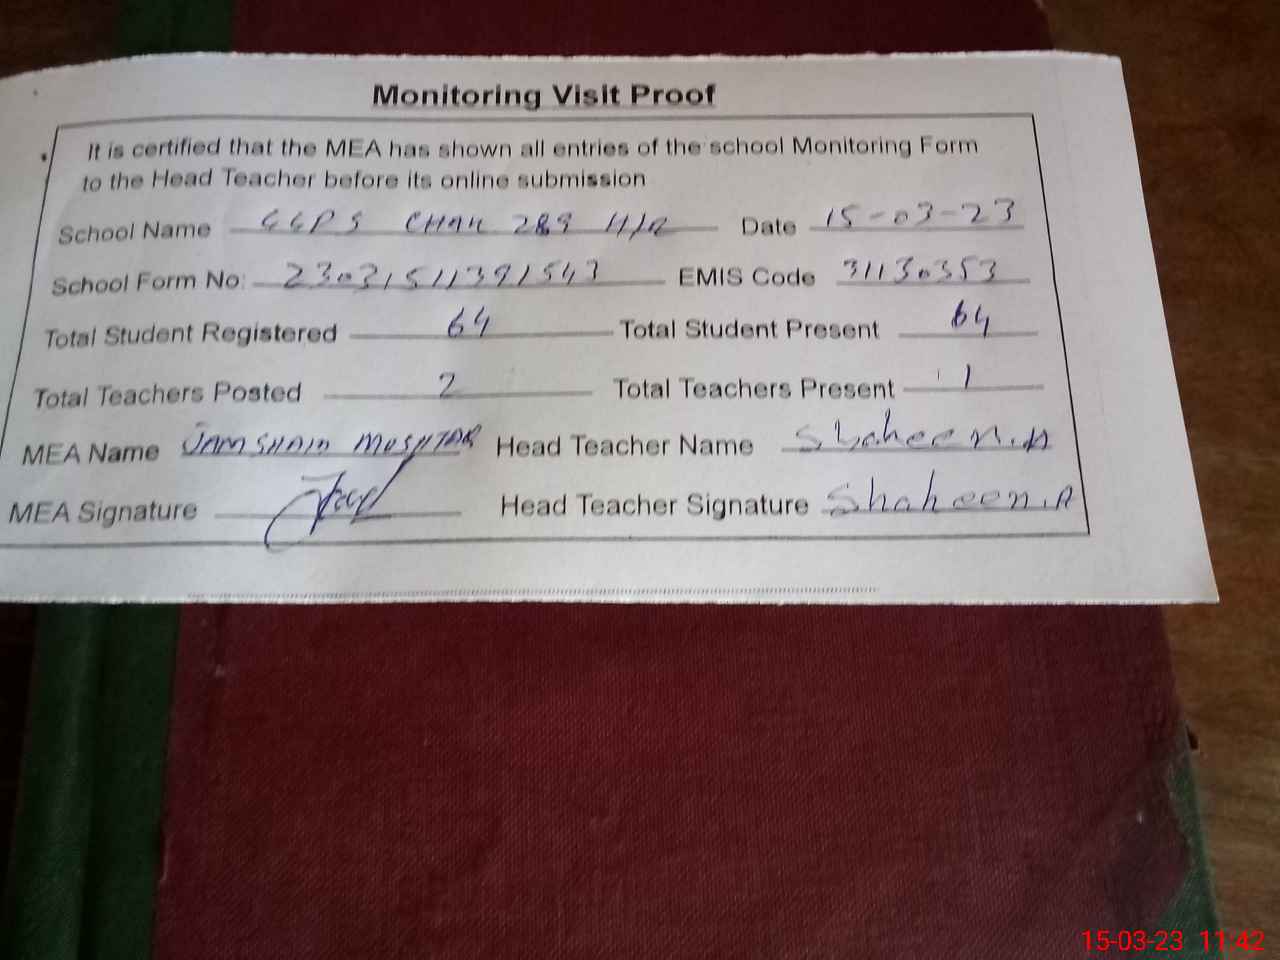 Monitoring Visit Proof
It is certified that the MEA has shown all entries of the school Monitoring Form
to the Head Teacher before its online submission
School Name GGPS CHAK 289 H/R Date 15-03-23
School Form No: 23031511391543 EMIS Code 31130353
Total Student Registered 64 Total Student Present 64
Total Teachers Posted 2 Total Teachers Present 1
MEA Name JAMSHAID MUSHTAQ Head Teacher Name Shaheen.A
MEA Signature Head Teacher Signature Shaheen.A
15-03-23 11:42